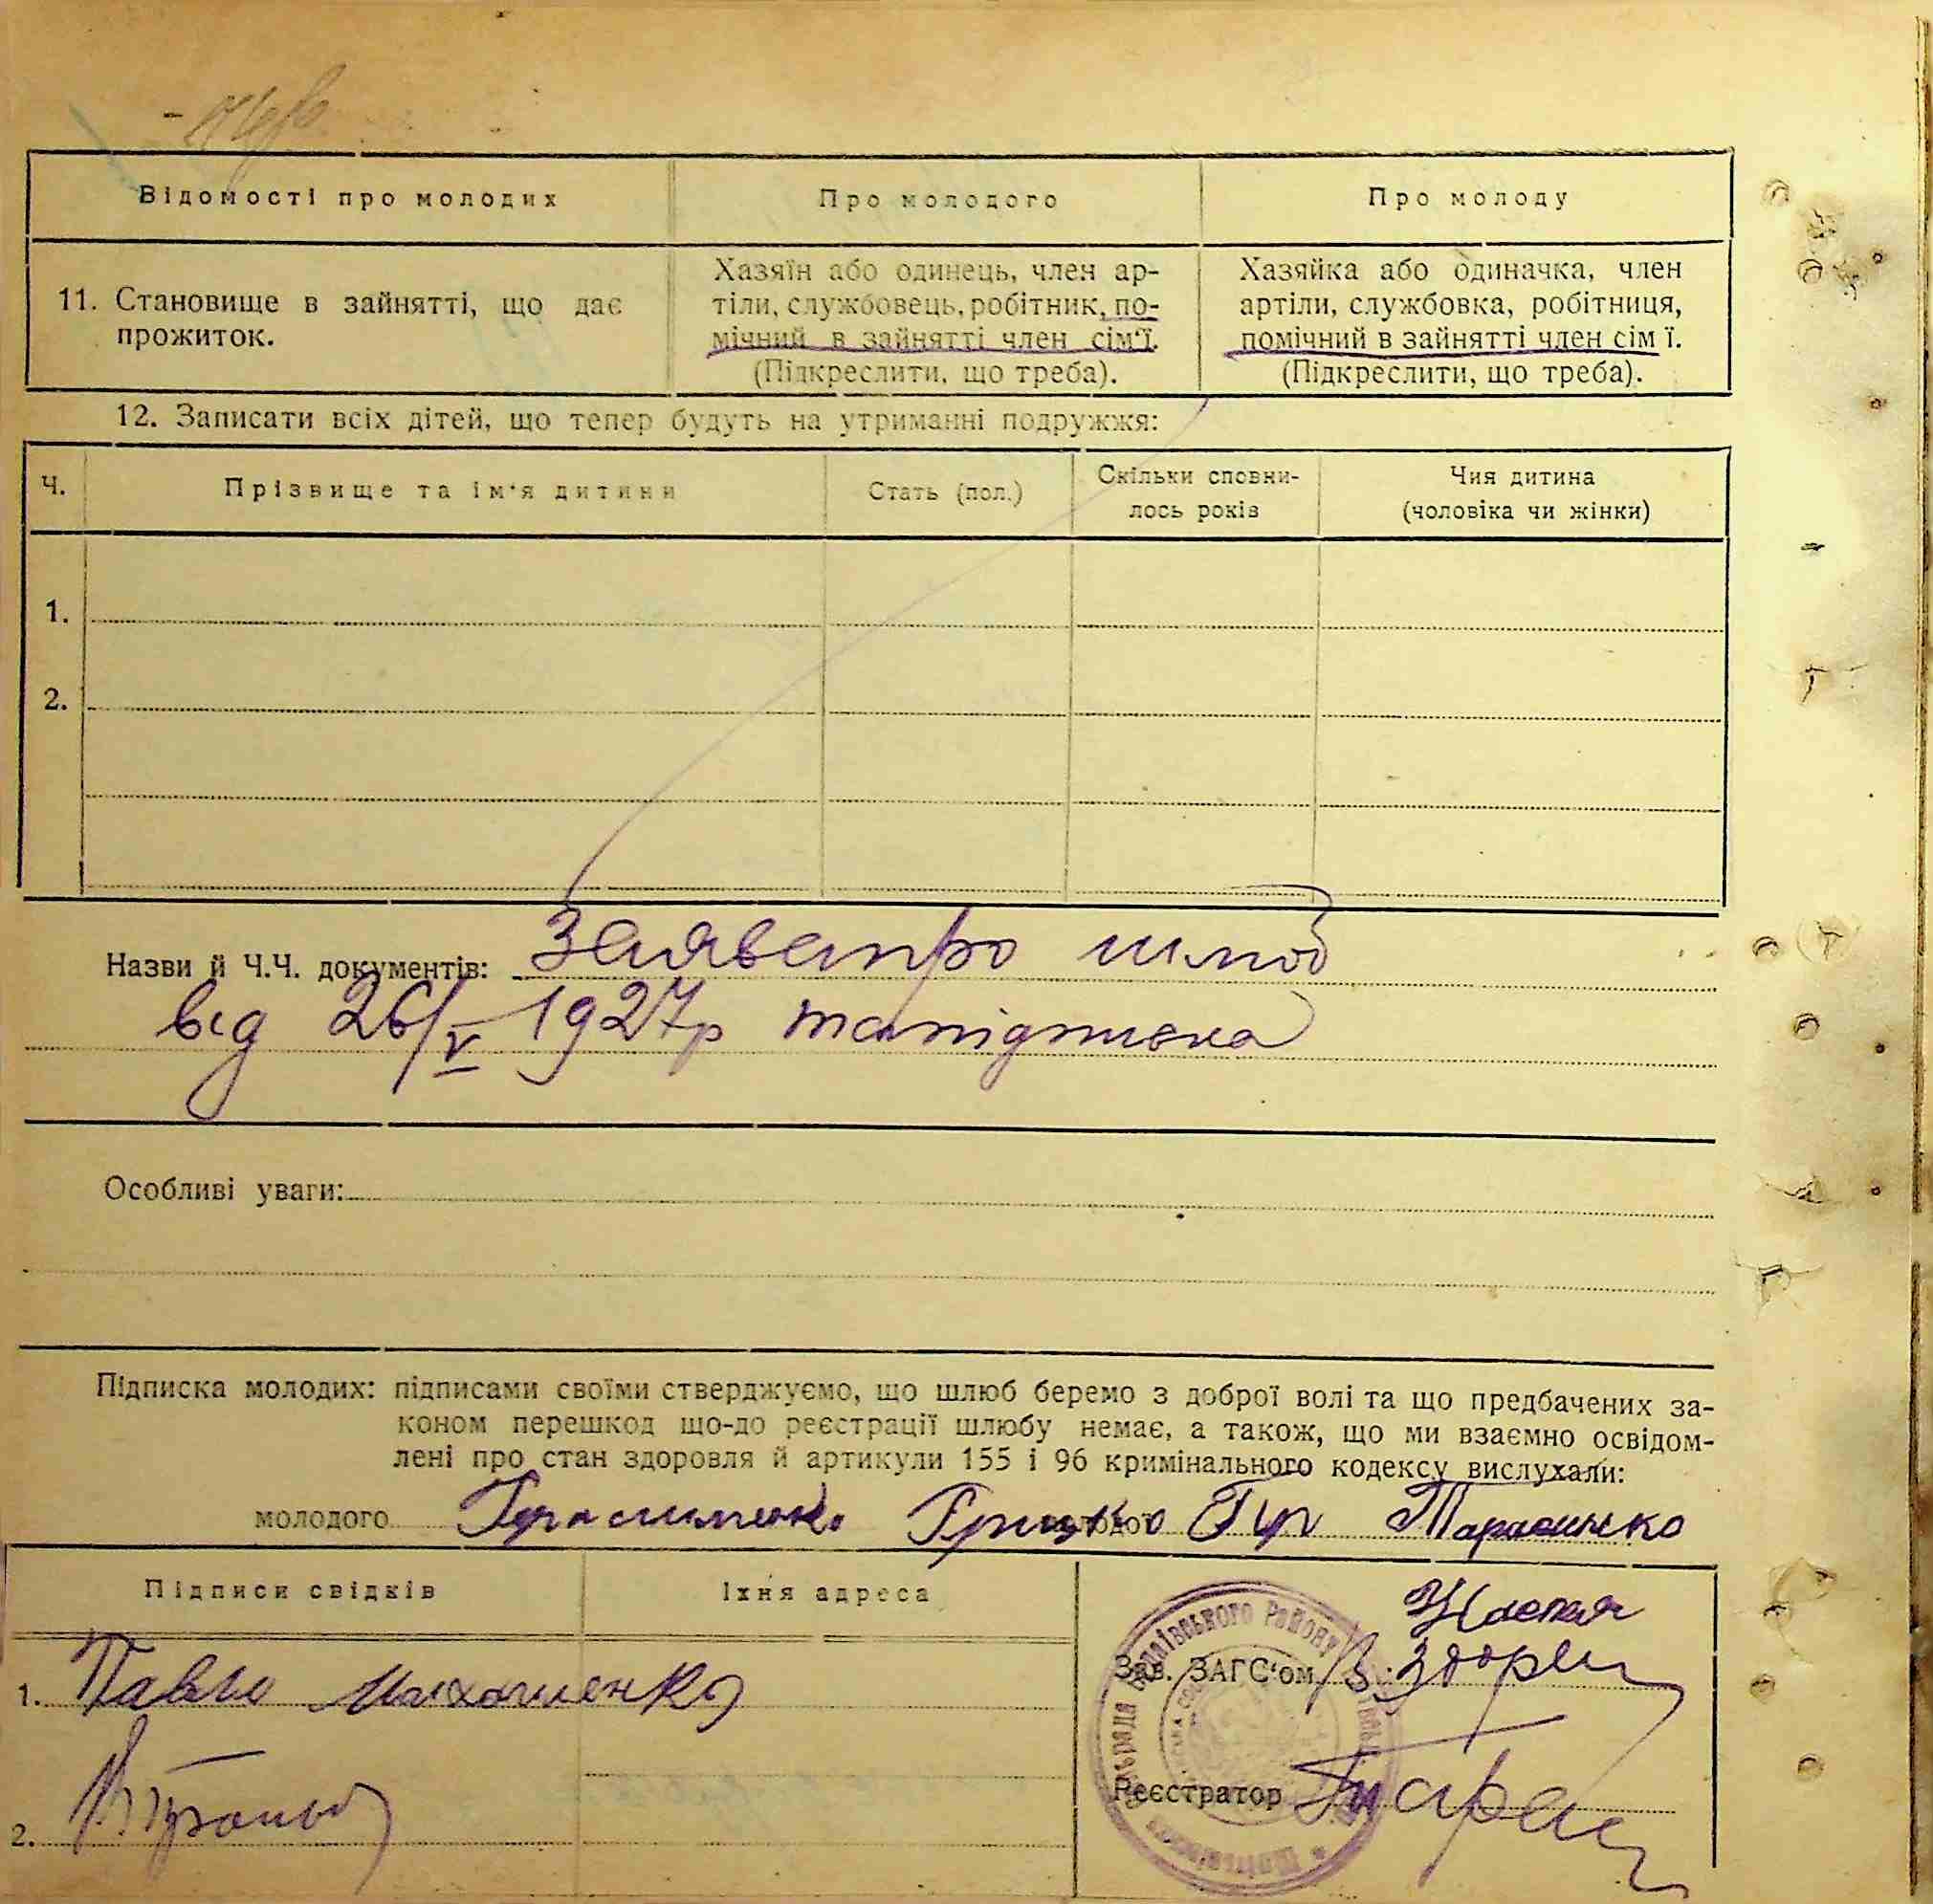 Відомості про молодих
Про молодого
Про молоду
11. Становище в зайнятті, що дає
прожиток.
Хазяїн або одинець, член ар-
тіли, службовець, робітник, по-
мічний в зайнятті член сім'ї.
(Підкреслити, що треба).
Хазяйка або одиначка, член
артіли, службовка, робітниця,
помічний в зайнятті член сім ї.
(Підкреслити, що треба).
12. Записати всіх дітей, що тепер будуть на утриманні подружжя:
Ч.
Прізвище та ім'я дитини
Стать (пол.)
Скільки сповни-
лось років
Чия дитина
(чоловіка чи жінки)
1.
2.
Назви й Ч.Ч. документів: Заява про шлюб
від 26/V 1927р та підписка
Особливі уваги:
Підписка молодих: підписами своїми стверджуємо, що шлюб беремо з доброї волі та що предбачених за-
коном перешкод що-до реєстрації шлюбу немає, а також, що ми взаємно освідом-
лені про стан здоровля й артикули 155 і 96 кримінального кодексу вислухали:
молодого Грицько молодої Тарасенко
Настя
Підписи свідків
Їхня адреса
1. Павло
2.
Зав. ЗАГС'ом
Реєстратор